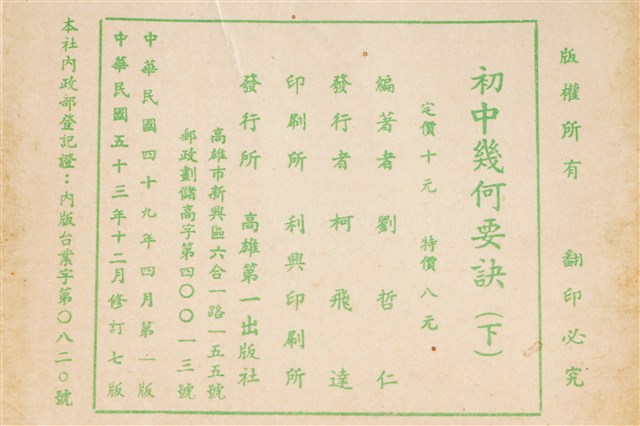 版權所有 翻印必究
初中幾何要訣(下)
定價十元 特價八元
編著者 劉哲仁
發行者 柯飛達
印刷所 利興印刷所
發行所 高雄第一出版社
高雄市新興區六合一路一五五號
郵政劃儲高字第四〇〇一三號
中華民國四十九年四月第一版
中華民國五十三年十二月修訂七版
本社內政部登記證:內版台業字第〇八二〇號